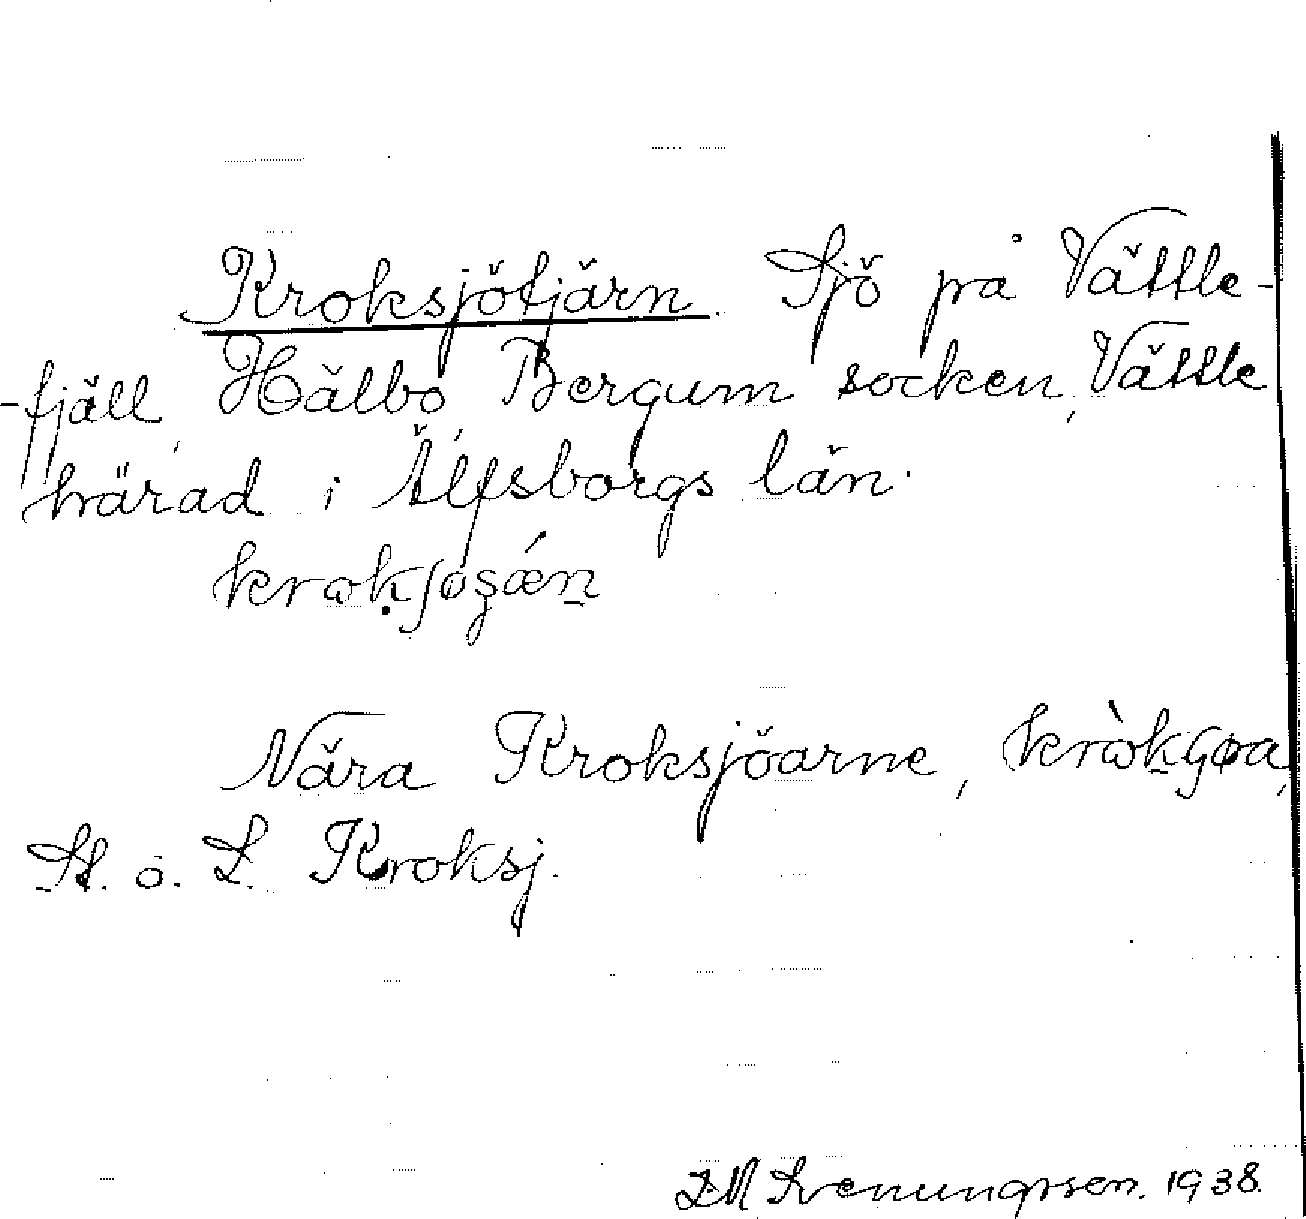 Kroksjötjärn. Sjö på Vättle-
-fjäll, Hälbo, Bergum socken, Vättle
härad i Älfsborgs län.
Nära Kroksjöarne,
St. o. L. Kroksj.
Svenungsson. 1938.